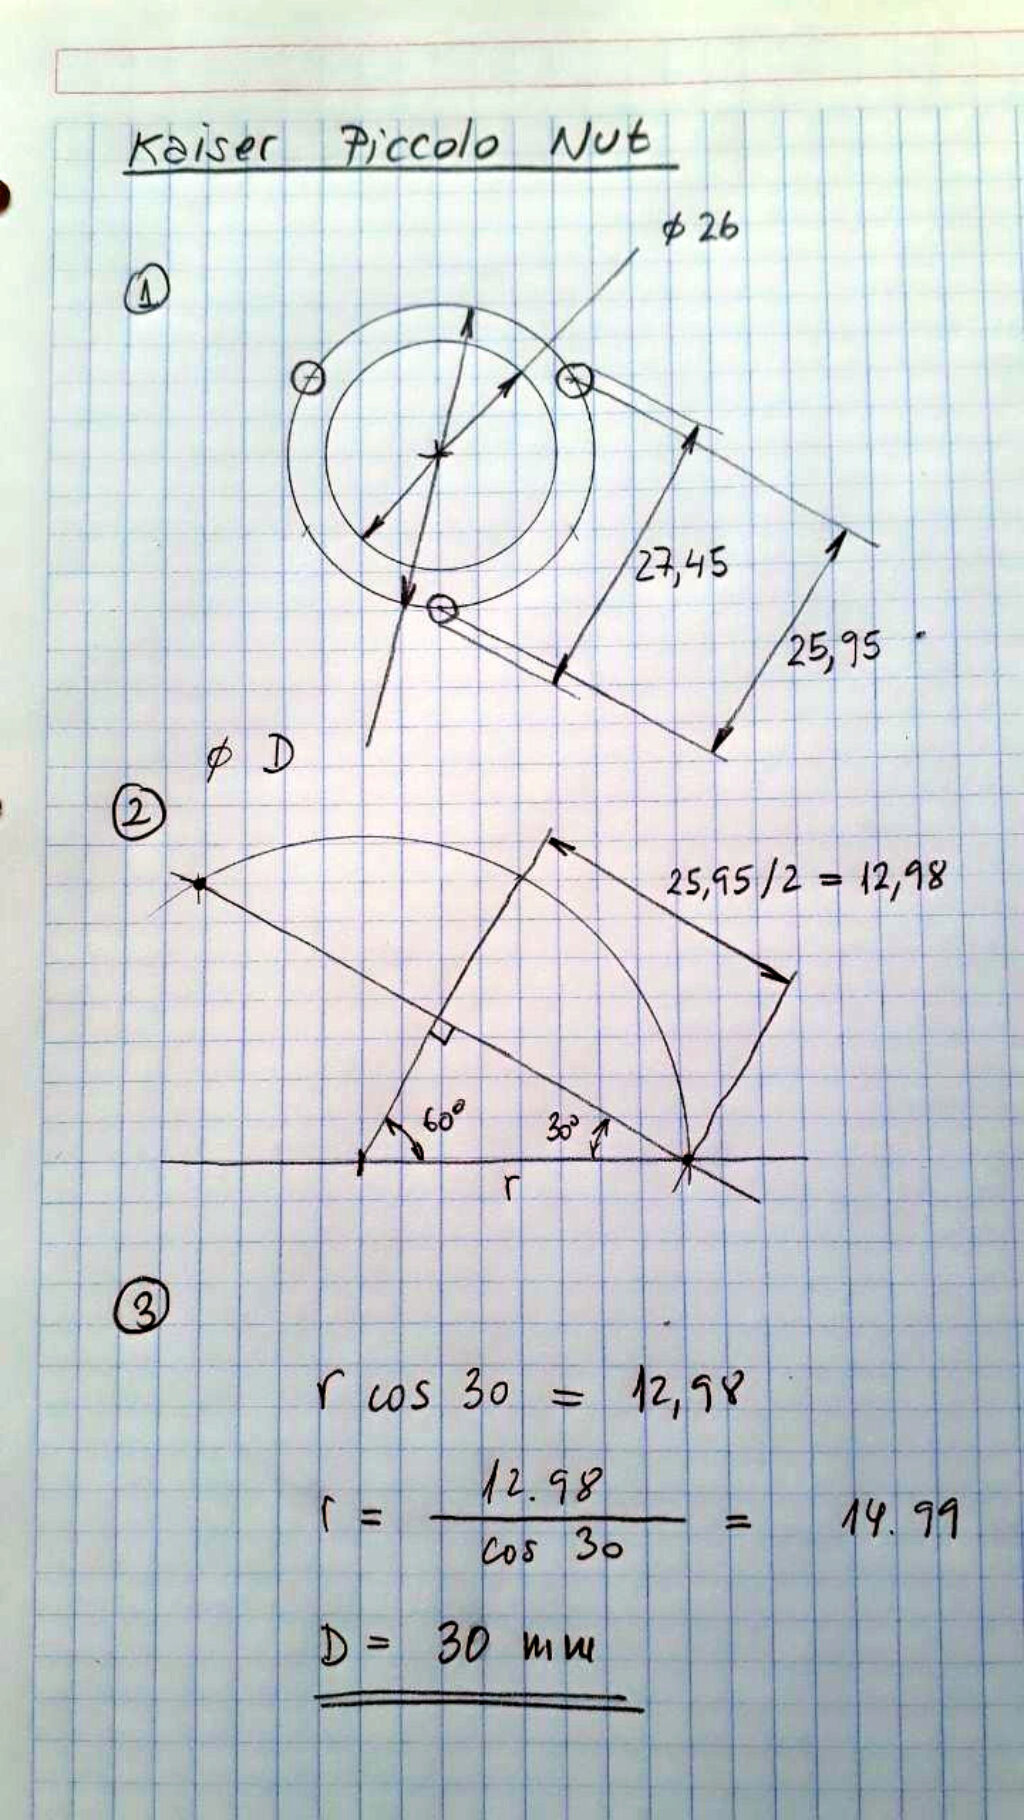 Kaiser Piccolo Nut
ϕ 26
1
27,45
25,95
ϕ D
2
25,95/2 = 12,98
60°
30°
r
3
r cos 30 = 12,98
r = 12.98 / cos 30 = 14.99
D = 30 mm